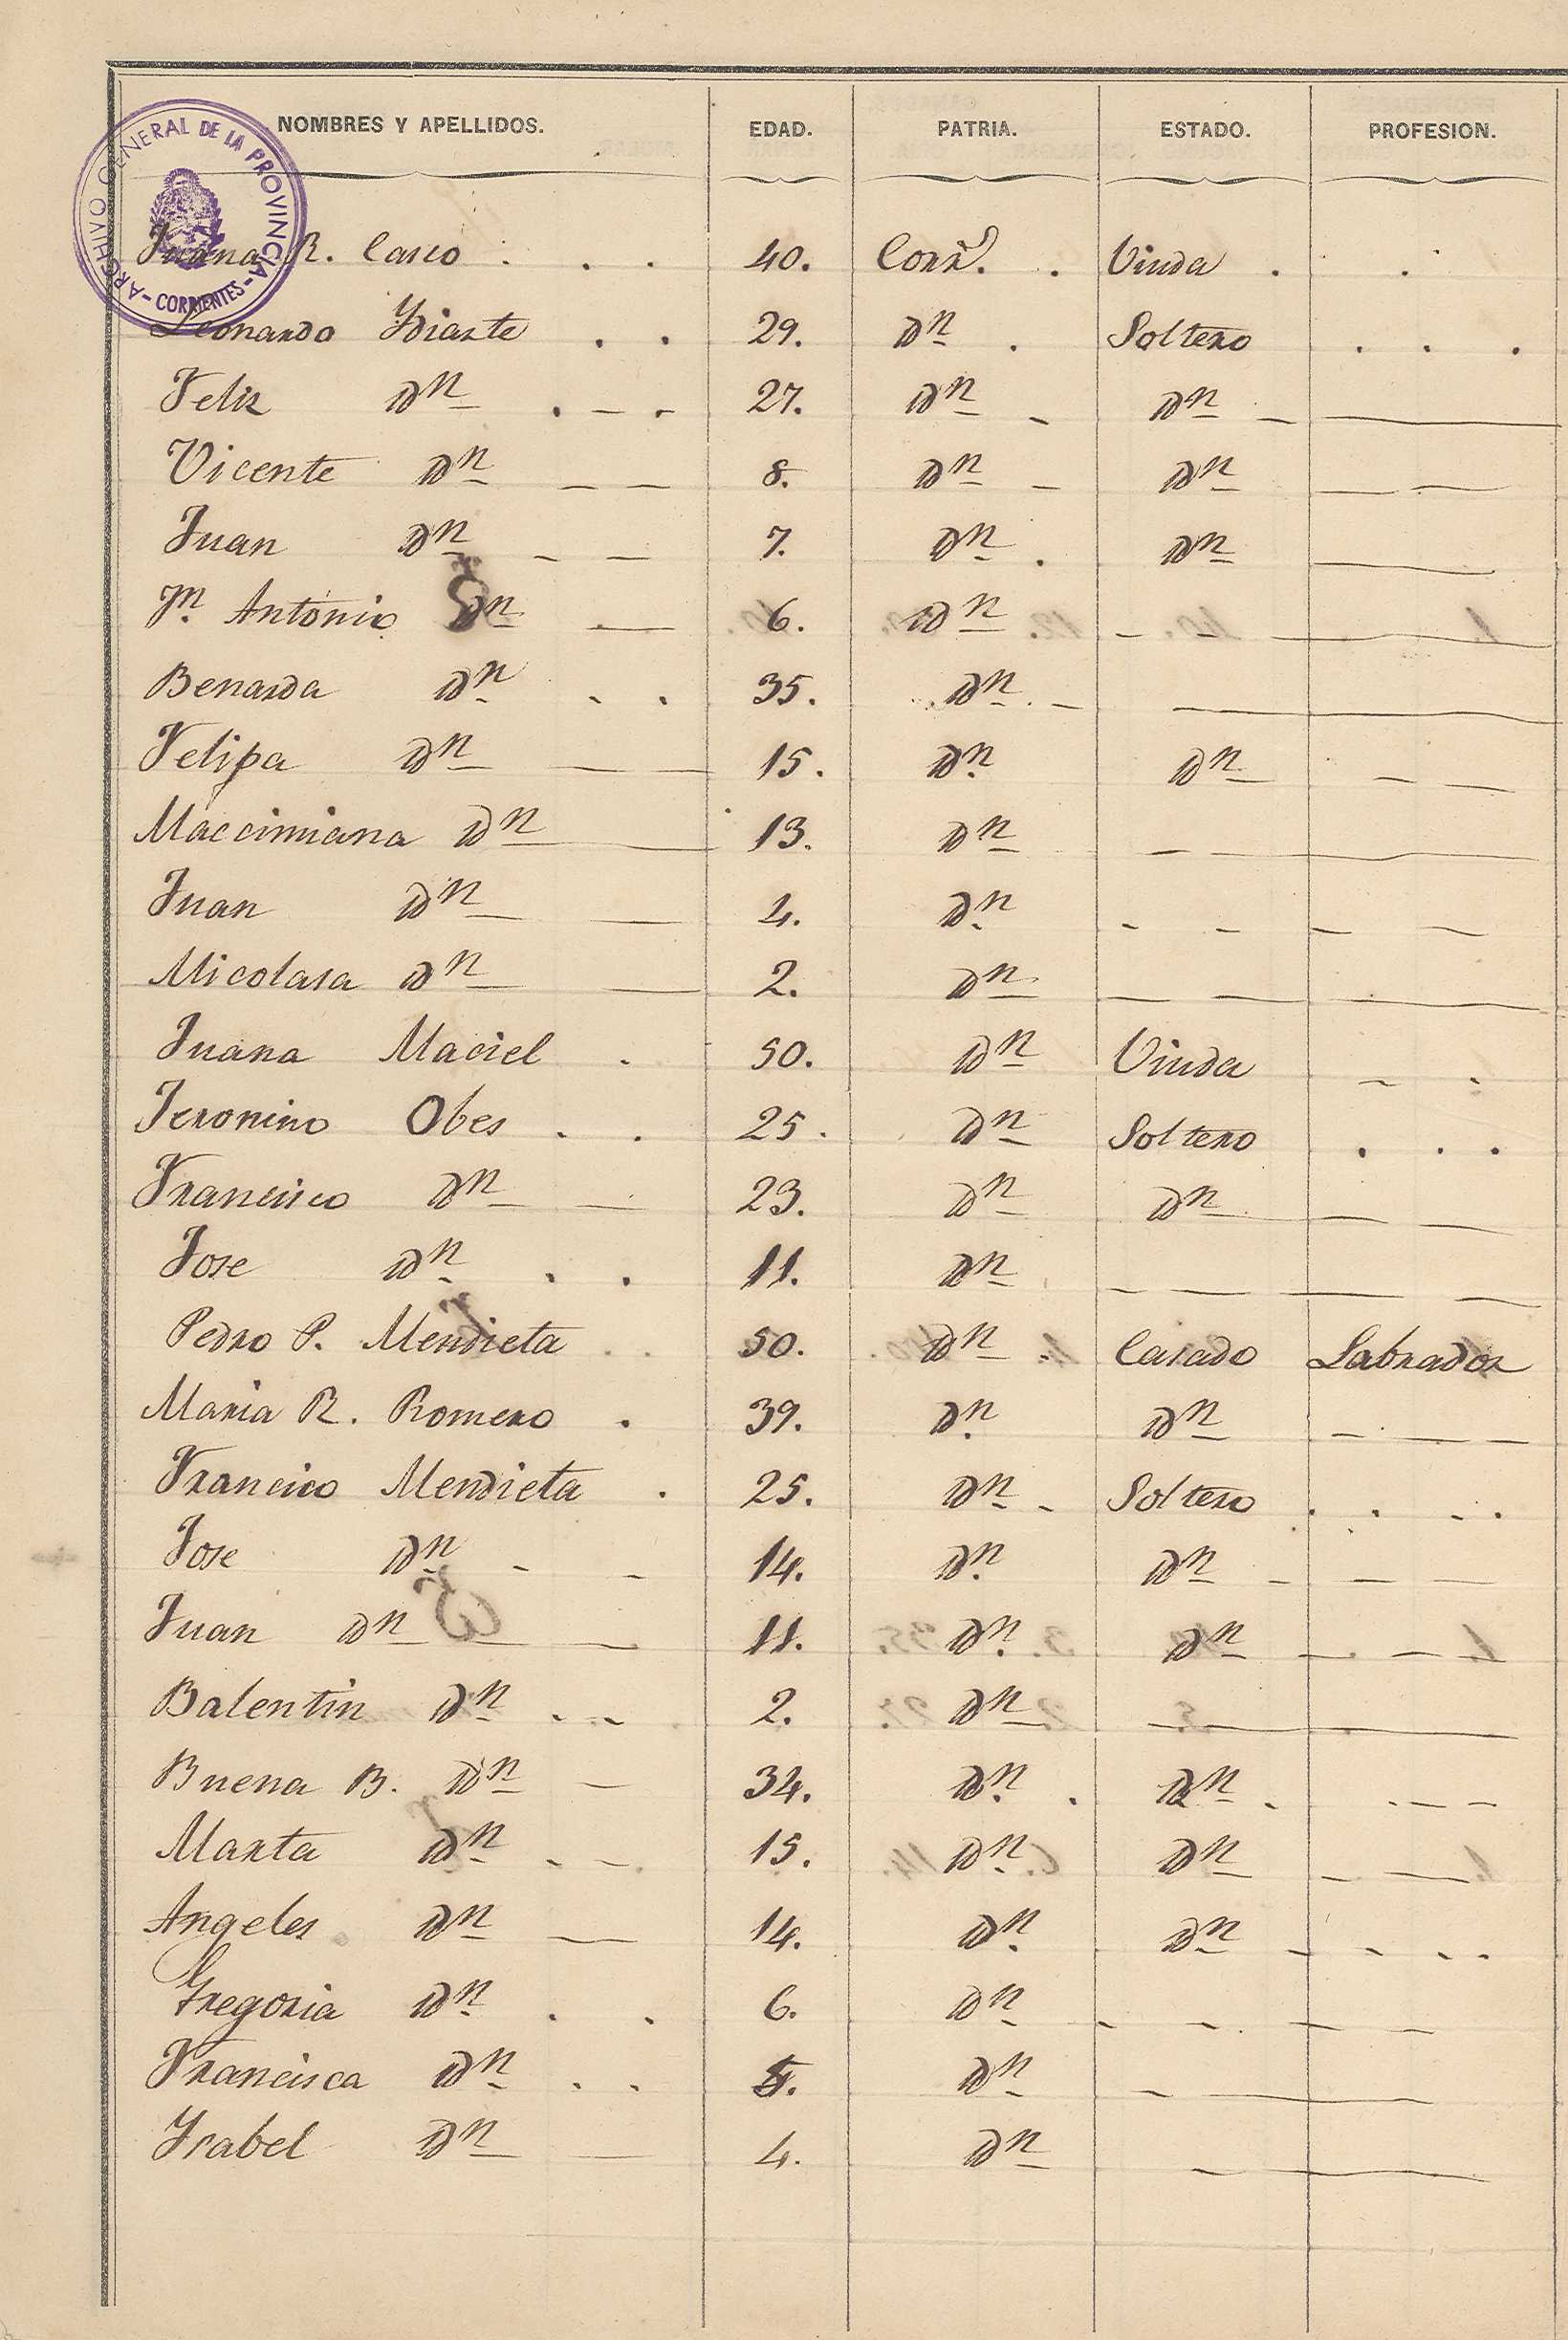 NOMBRES Y APELLIDOS. EDAD. PATRIA. ESTADO. PROFESION.
ARCHIVO GENERAL DE LA PROVINCIA - CORRIENTES -
Juana R. Casco . . . 40. Corr.s . Viuda . .
Leonardo Ydiarte . . 29. Dn . Soltero . . .
Felis Dn . - . 27. Dn - Dn -
Vicente Dn - - 8. Dn - Dn - -
Juan Dn - - 7. Dn . Dn -
Jn. Antonio Dn - 6. Dn - - -
Benarda Dn . . 35. Dn - -
Felipa Dn - - 15. Dn Dn - -
Maccimiana Dn - 13. Dn - - -
Juan Dn - 4. Dn - - - -
Nicolasa Dn - 2. Dn - - - -
Juana Maciel . 50. Dn Viuda - .
Jeronimo Obes . . 25. Dn Soltero . . .
Francisco Dn - 23. Dn Dn - -
Jose Dn . . 11. Dn - - - -
Pedro P. Mendieta . . 50. Dn - Casado Labrador
Maria R. Romero . 39. Dn Dn - - -
Francico Mendieta . 25. Dn - Soltero . . - .
Jose Dn - - 14. Dn Dn - - -
Juan Dn - - 11. Dn Dn - - -
Balentin Dn . - - 2. Dn - -
Buena B. Dn - 34. Dn . Dn . - - -
Marta Dn - - 15. Dn Dn - -
Angeles Dn - 14. Dn Dn - - - -
Gregoria Dn . . 6. Dn - - - -
Francisca Dn . . 5. Dn - -
Ysabel Dn - 4. Dn - -